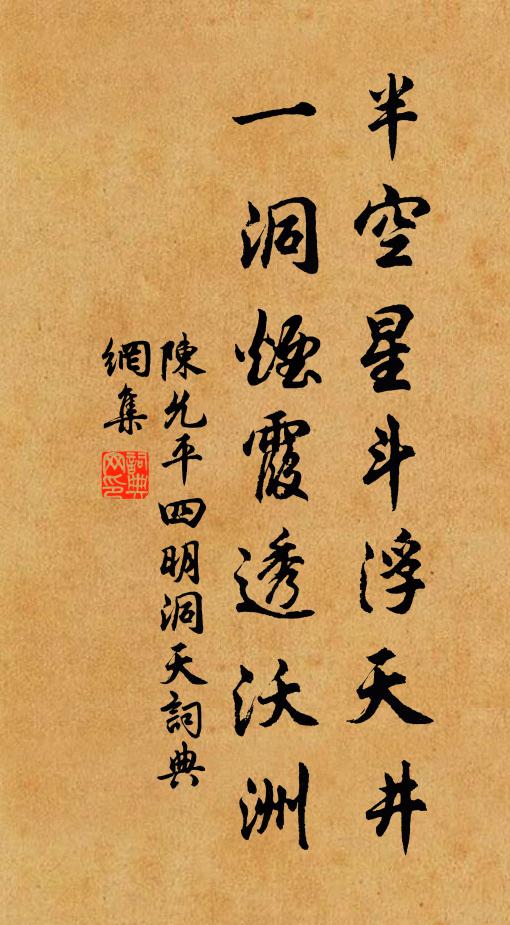 半空星斗浮天井
一洞煙霞透沃洲
陳允平四明洞天詞典
網集
詞典網印